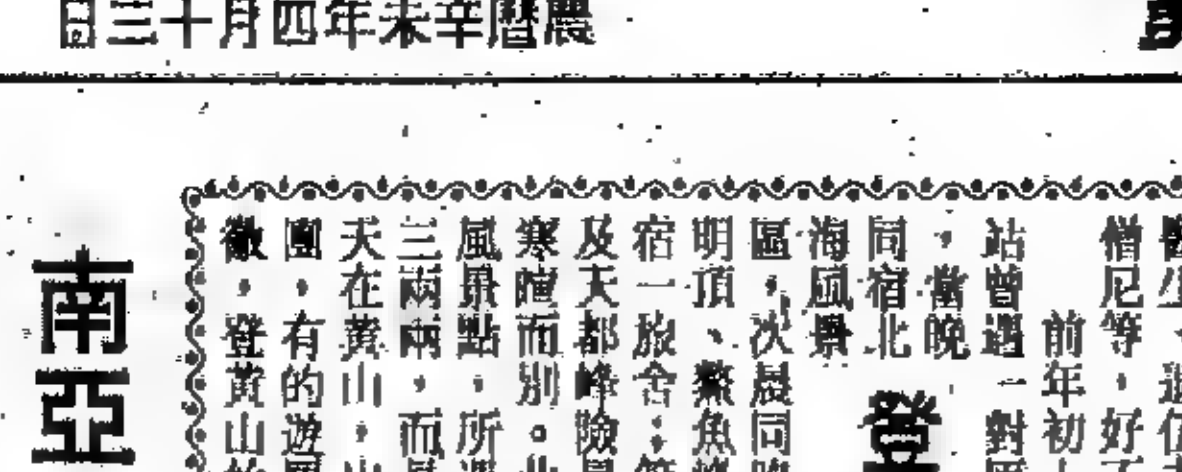 農曆辛未年四月十三日
僧尼等，好
前年初
站曾遇一對
，當晚
同宿北
海風景
登
區，次晨同
明頂、鰲魚
宿一旅舍；
及天都峰險
寒暄而別。
風景點，所
三兩兩，而
天在黃山，
團，有的遊
徽，登黃山
南亞